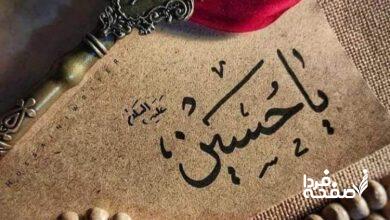 یا حسین
علیه السلام
صفحه فردا